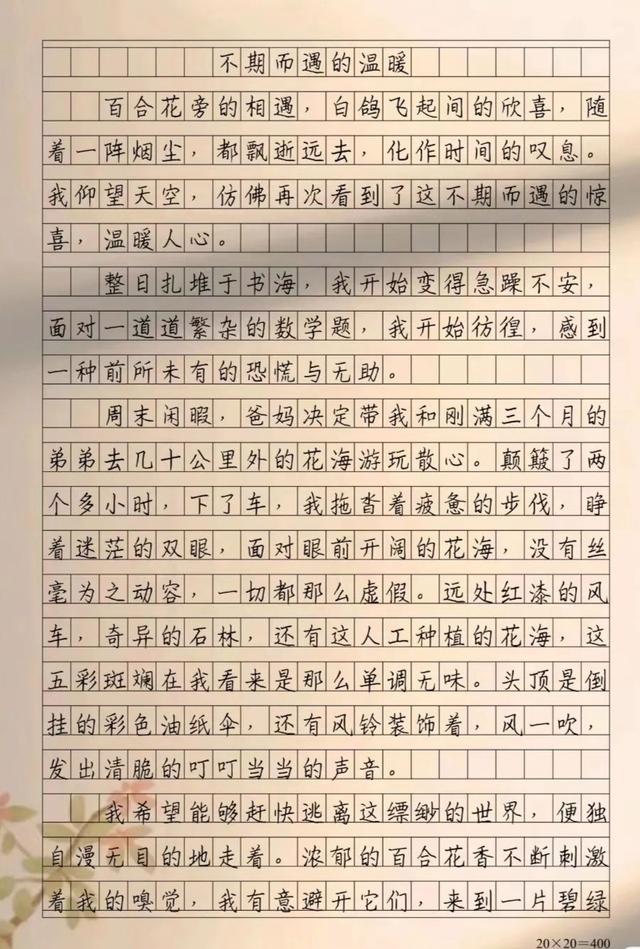 不期而遇的温暖
百合花旁的相遇，白鸽飞起间的欣喜，随
着一阵烟尘，都飘逝远去，化作时间的叹息。
我仰望天空，仿佛再次看到了这不期而遇的惊
喜，温暖人心。
整日扎堆于书海，我开始变得急躁不安，
面对一道道繁杂的数学题，我开始彷徨，感到
一种前所未有的恐慌与无助。
周末闲暇，爸妈决定带我和刚满三个月的
弟弟去几十公里外的花海游玩散心。颠簸了两
个多小时，下了车，我拖沓着疲惫的步伐，睁
着迷茫的双眼，面对眼前开阔的花海，没有丝
毫为之动容，一切都那么虚假。远处红漆的风
车，奇异的石林，还有这人工种植的花海，这
五彩斑斓在我看来是那么单调无味。头顶是倒
挂的彩色油纸伞，还有风铃装饰着，风一吹，
发出清脆的叮叮当当的声音。
我希望能够赶快逃离这缥缈的世界，便独
自漫无目的地走着。浓郁的百合花香不断刺激
着我的嗅觉，我有意避开它们，来到一片碧绿
20×20=400